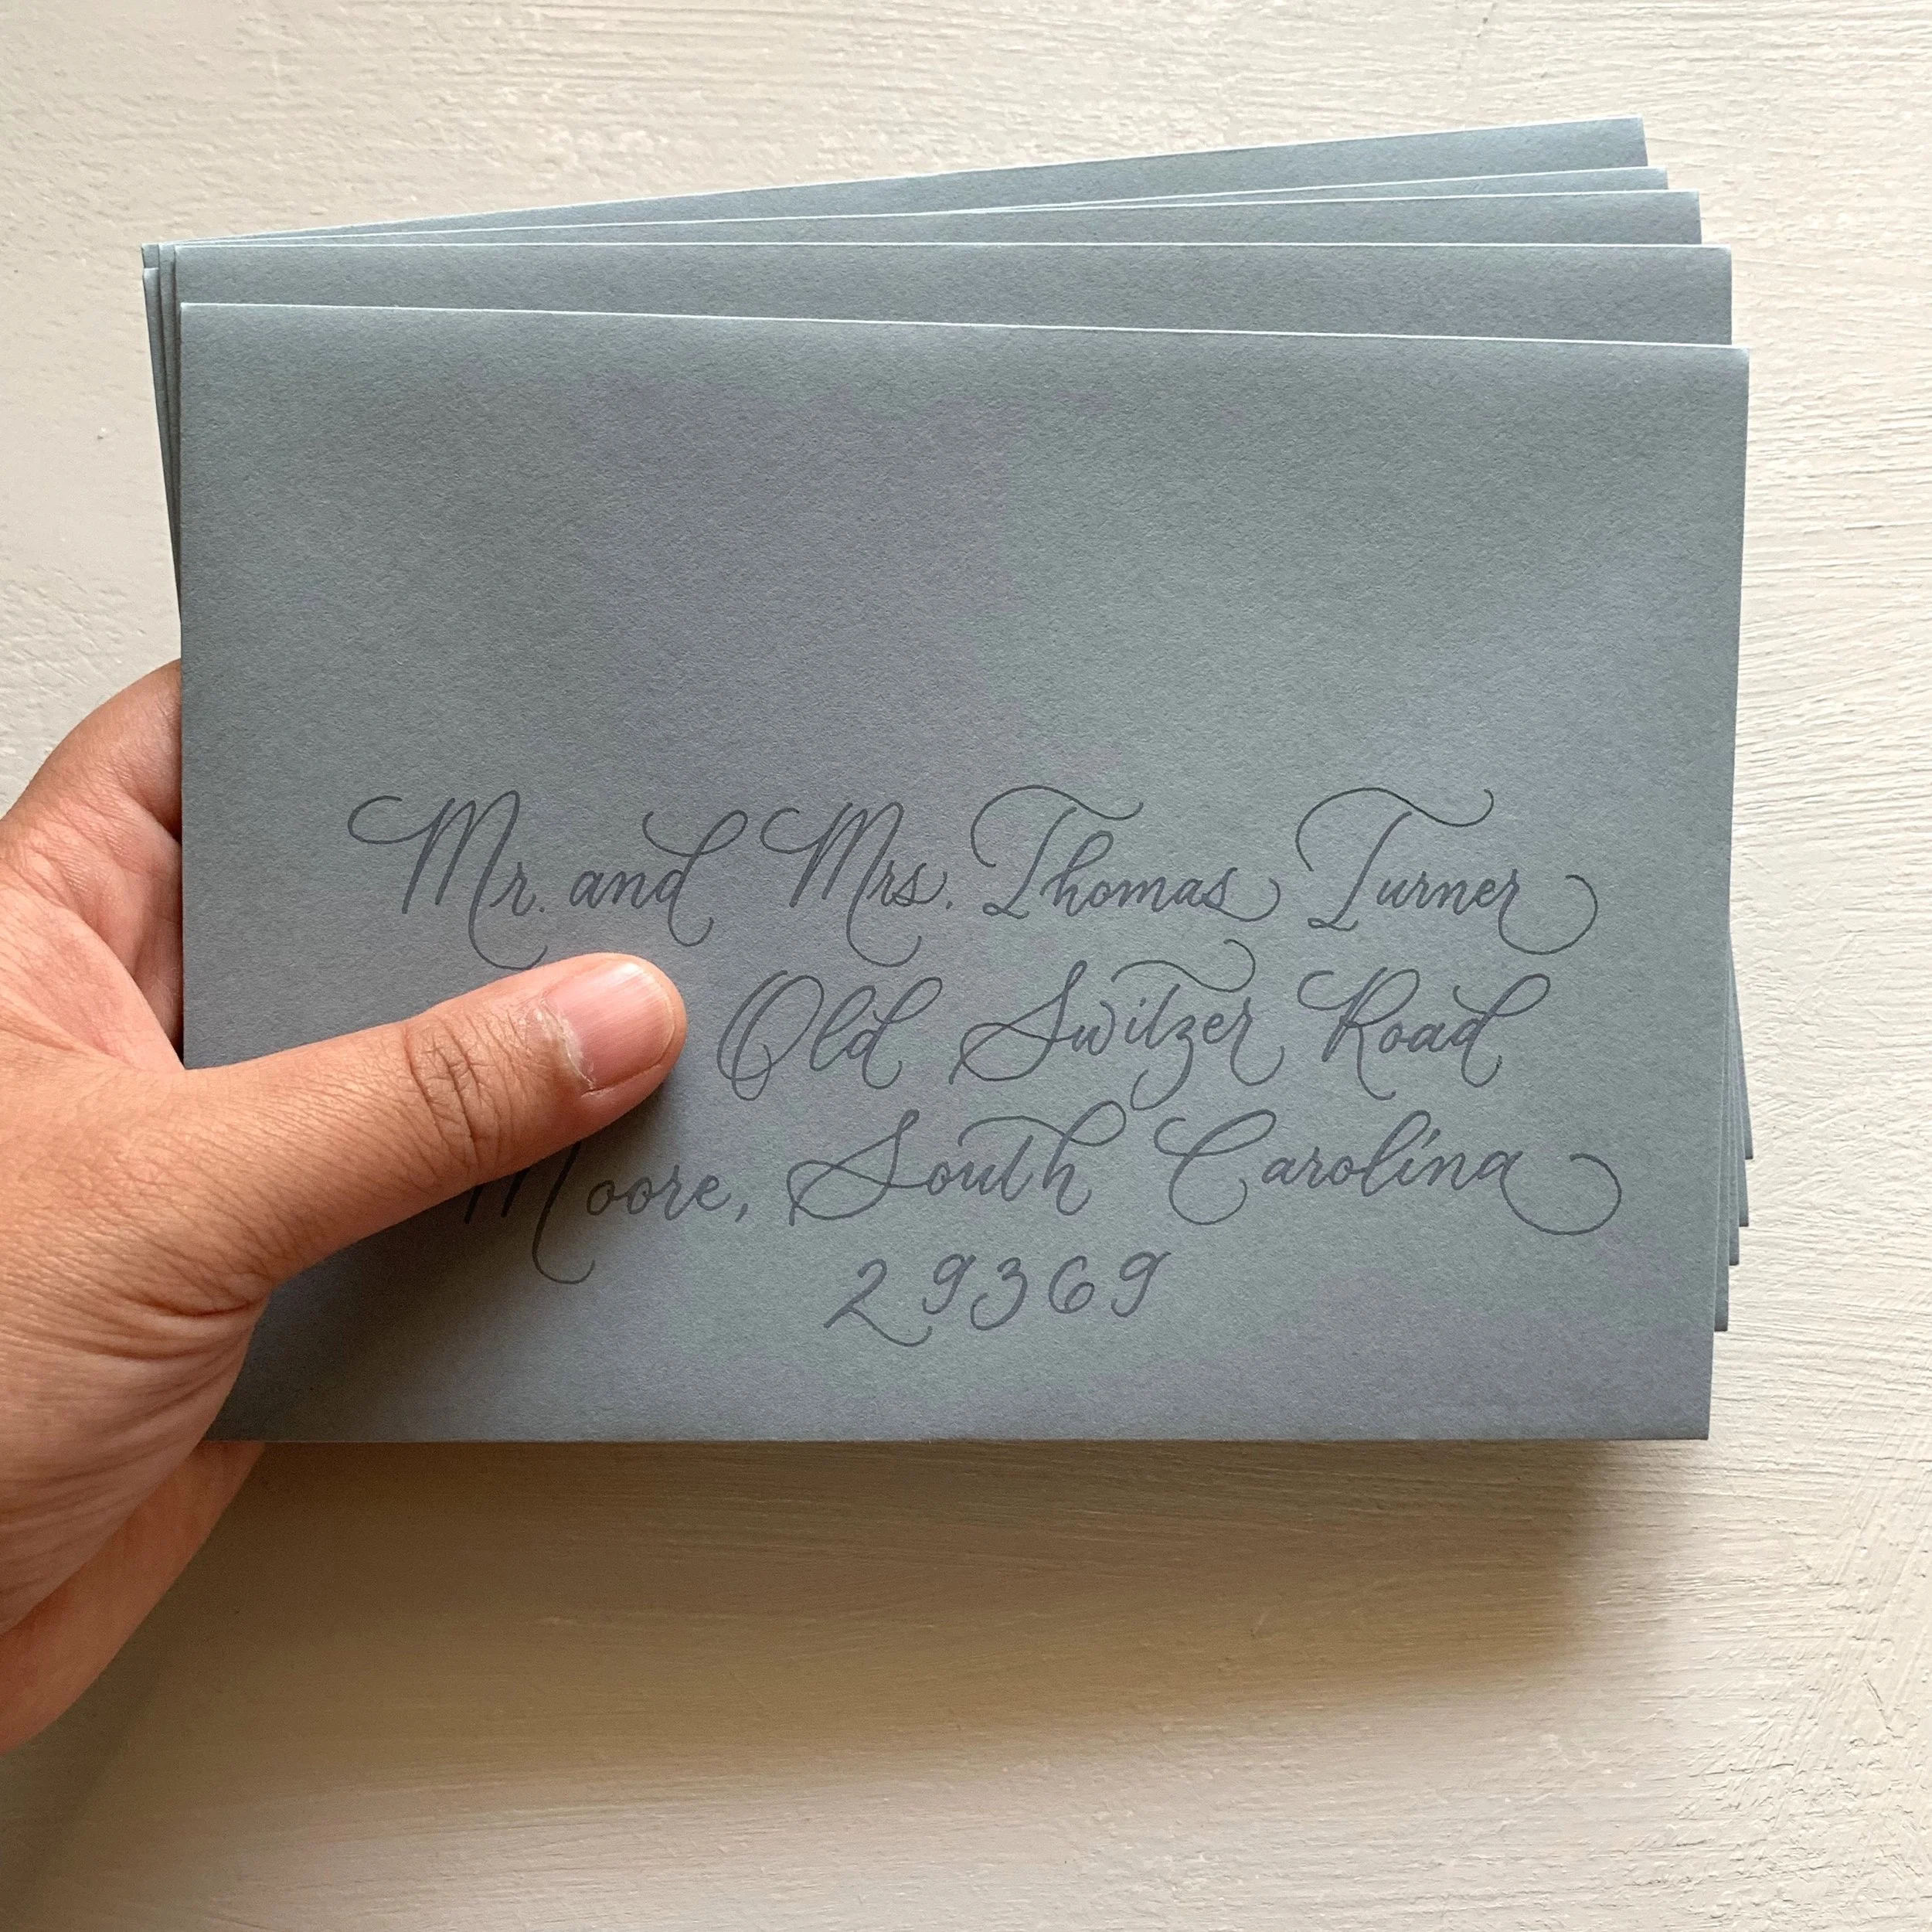 Mr. and Mrs. Thomas Turner
Old Switzer Road
Moore, South Carolina
29369